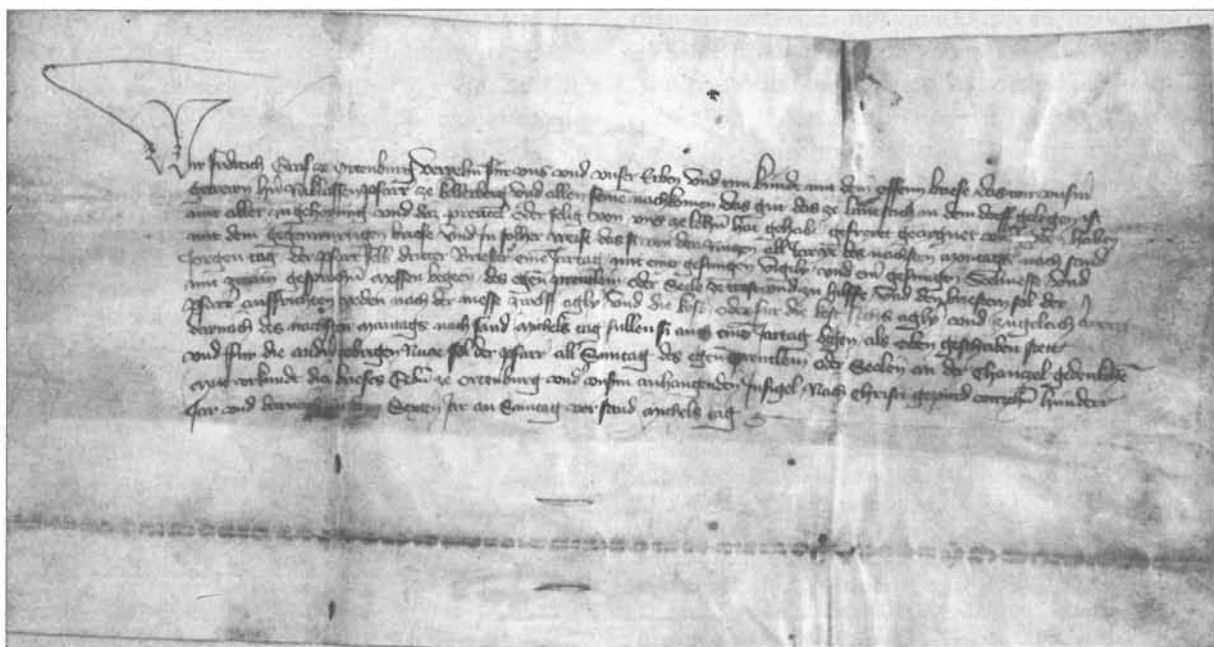 Wir fridrich Graf ze Ortenburg verjehn für uns und unser Erben und tun kund mit dem offenn briefe das wir unserm
getrewn hern Niklassen pfarrer ze und allen seinen nachkomen das gut das ze an dem dorff gelegen ist
mit aller zugehorung und der oder selig von uns ze lehn hat gehabt gefreyet geaygnet haben
mit dem gegenwurtigen briefe und in solher weise das si von den wegen alle Jerge des nachsten montags nach sand
Jorgen tag der pfarrer selb dritter Briester eine Jartag mit einer gesungen vigily und ein gesungen Seelmesse und
mit zwain gesprochn messen begeen des egen oder Seele ze trost und ze hilffe und den briestern sol der
pfarrer ausrichten yedem nach der messe zwelff aglyer und die kost oder für die kost Sechs aglyer und zugeleich
dernach des nachsten mantags nach sand Michels tag sullen si aber eine Jartag begen als oben geschriben stett
und für die sol der pfarrer alle Suntag des egen oder Seelen an der Chanzel gedenkchen
Mit urkund dicz briefes Gebn ze Ortenburg under unserm anhangenden Insigel Nach Christi gepurd vierzehn hundert
Jar und dernach in dem Jar an Samtag vor sand Michels tag